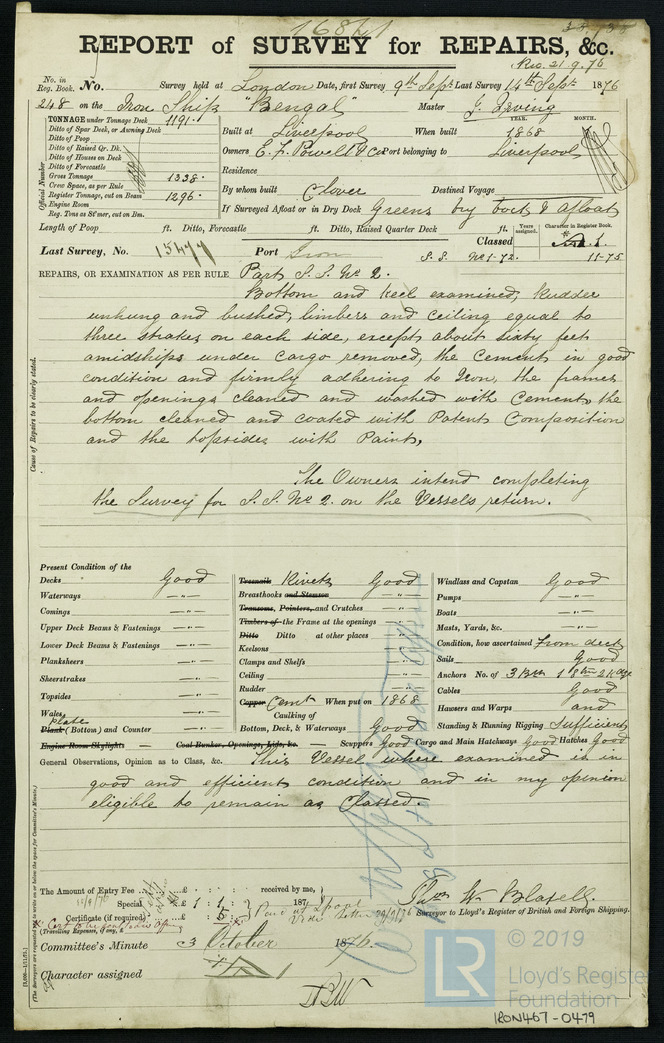 16841
REPORT of SURVEY for REPAIRS, &c.
Rec. 21.9.76
No. in Reg. Book. No. Survey held at London Date, first Survey 9th Sept Last Survey 14th Sept 1876
248 on the Iron Ship "Bengal" Master J. Irving
TONNAGE under Tonnage Deck 1191.
Ditto of Spar Deck, or Awning Deck
Ditto of Poop
Ditto of Raised Qr. Dk.
Ditto of Houses on Deck
Ditto of Forecastle
Gross Tonnage 1338.
Crew Space, as per Rule
Register Tonnage, cut on Beam 1296.
Engine Room
Reg. Tons as St'mer, cut on Bm.
Official Number
YEAR. MONTH.
Built at Liverpool When built 1868
Owners E. J. Powell & Co Port belonging to Liverpool
Residence
By whom built Clover Destined Voyage
If Surveyed Afloat or in Dry Dock Greens Dry Dock & afloat
Length of Poop ft. Ditto, Forecastle ft. Ditto, Raised Quarter Deck ft.
Years assigned. Character in Register Book.
Last Survey, No. 15477 Port Iron Classed
S.S. No 1-72. 11-75
REPAIRS, OR EXAMINATION AS PER RULE Part S.S. No 2.
Bottom and Keel examined, Rudder
unhung and bushed, limbers and ceiling equal to
three strakes on each side, except about sixty feet
amidships under cargo removed, the Cement in good
condition and firmly adhering to Iron, the frames
and openings cleaned and washed with Cement, the
bottom cleaned and coated with Patent Composition
and the topsides with Paint,
The Owners intend completing
the Survey for S.S. No 2. on the Vessels return.
Cause of Repairs to be clearly stated.
Present Condition of the
Decks Good
Waterways — " —
Comings — " —
Upper Deck Beams & Fastenings — " —
Lower Deck Beams & Fastenings — " —
Planksheers — " —
Sheerstrakes — " —
Topsides — " —
Wales — " —
Plank Plate (Bottom) and Counter — " —
Engine Room Skylights — Coal Bunker, Openings, Lids, &c. — Scuppers Good Cargo and Main Hatchways Good Hatches Good
Treenails Rivets Good
Breasthooks and Stemson — " —
Transoms, Pointers, and Crutches — " —
Timbers of the Frame at the openings — " —
Ditto Ditto at other places — " —
Keelsons — " —
Clamps and Shelfs — " —
Ceiling — " —
Rudder — " —
Copper Cemt When put on 1868
Caulking of
Bottom, Deck, & Waterways Good
Windlass and Capstan Good
Pumps — " —
Boats — " —
Masts, Yards, &c. — " —
Condition, how ascertained From deck
Sails Good
Anchors No. of 3 Brs 1 Stm 2 Kdge
Cables Good
Hawsers and Warps and
Standing & Running Rigging Sufficient
General Observations, Opinion as to Class, &c. This Vessel where examined is in
good and efficient condition and in my opinion
eligible to remain as Classed.
The Amount of Entry Fee £ : : received by me,
Special £ 1 : 1 : 187
Certificate (if required) : 5
(Travelling Expenses, if any, £ )
Thos W. Blaxell.
Surveyor to Lloyd's Register of British and Foreign Shipping.
Committee's Minute 3 October 1876.
Character assigned
(The Surveyors are requested not to write on or below the space for Committee's Minute.)
© 2019
LR
Lloyd's Register
Foundation
IRON467-0479